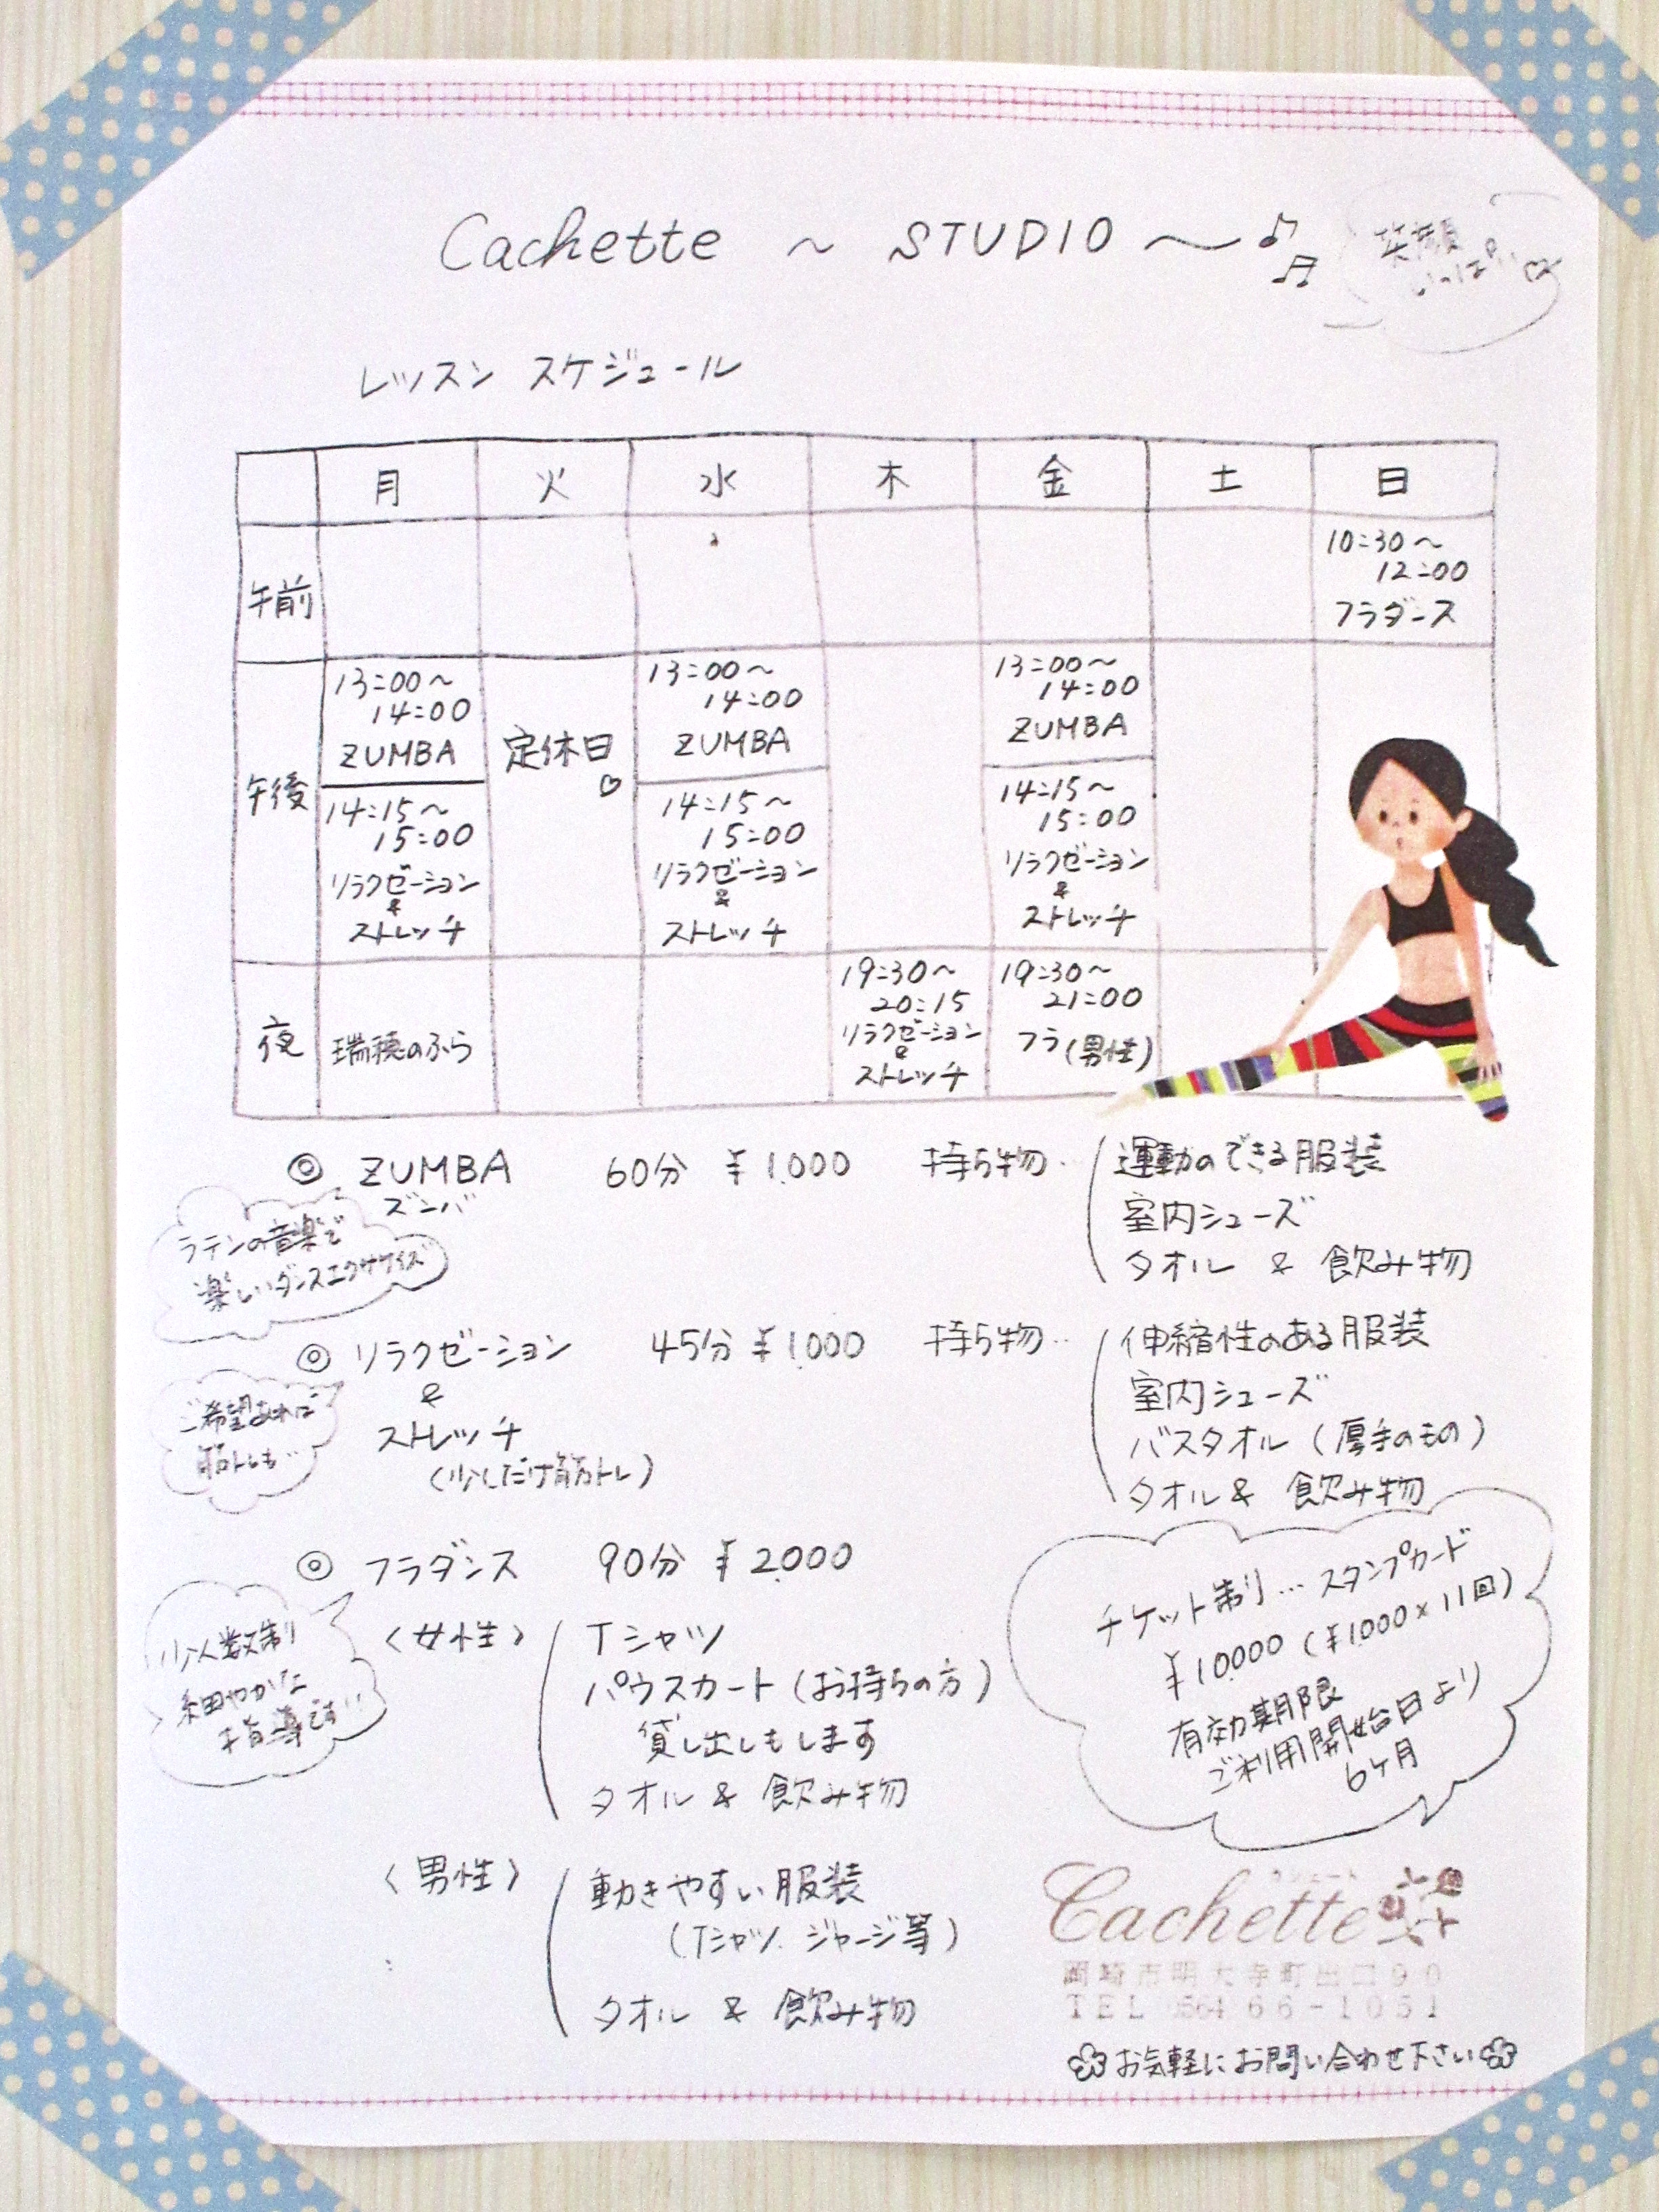 Cachette ～ STUDIO ～♪♬
笑顔
いっぱい♡
レッスン スケジュール
月 火 水 木 金 土 日
午前
10:30～
12:00
フラダンス
午後
13:00～
14:00
ZUMBA
14:15～
15:00
リラクゼーション
&
ストレッチ
定休日
♡
13:00～
14:00
ZUMBA
14:15～
15:00
リラクゼーション
&
ストレッチ
13:00～
14:00
ZUMBA
14:15～
15:00
リラクゼーション
&
ストレッチ
夜
瑞穂のふら
19:30～
20:15
リラクゼーション
&
ストレッチ
19:30～
21:00
フラ(男性)
◎ ZUMBA 60分 ¥1,000 持ち物‥
ズンバ
運動のできる服装
室内シューズ
タオル & 飲み物
ラテンの音楽で
楽しいダンスエクササイズ
◎ リラクゼーション 45分 ¥1,000 持ち物‥
&
ストレッチ
(少しだけ筋トレ)
伸縮性のある服装
室内シューズ
バスタオル (厚手のもの)
タオル & 飲み物
ご希望あれば
筋トレも‥
◎ フラダンス 90分 ¥2,000
少人数制
細やかな
指導です!!
〈女性〉
Tシャツ
パウスカート (お持ちの方)
貸し出しもします
タオル & 飲み物
〈男性〉
動きやすい服装
(Tシャツ、ジャージ等)
タオル & 飲み物
チケット制り…スタンプカード
¥10,000 (¥1,000×11回)
有効期限
ご利用開始日より
6ヶ月
カシェート
Cachette
岡崎市明大寺町出口90
TEL 0564 66-1051
お気軽にお問い合わせ下さい